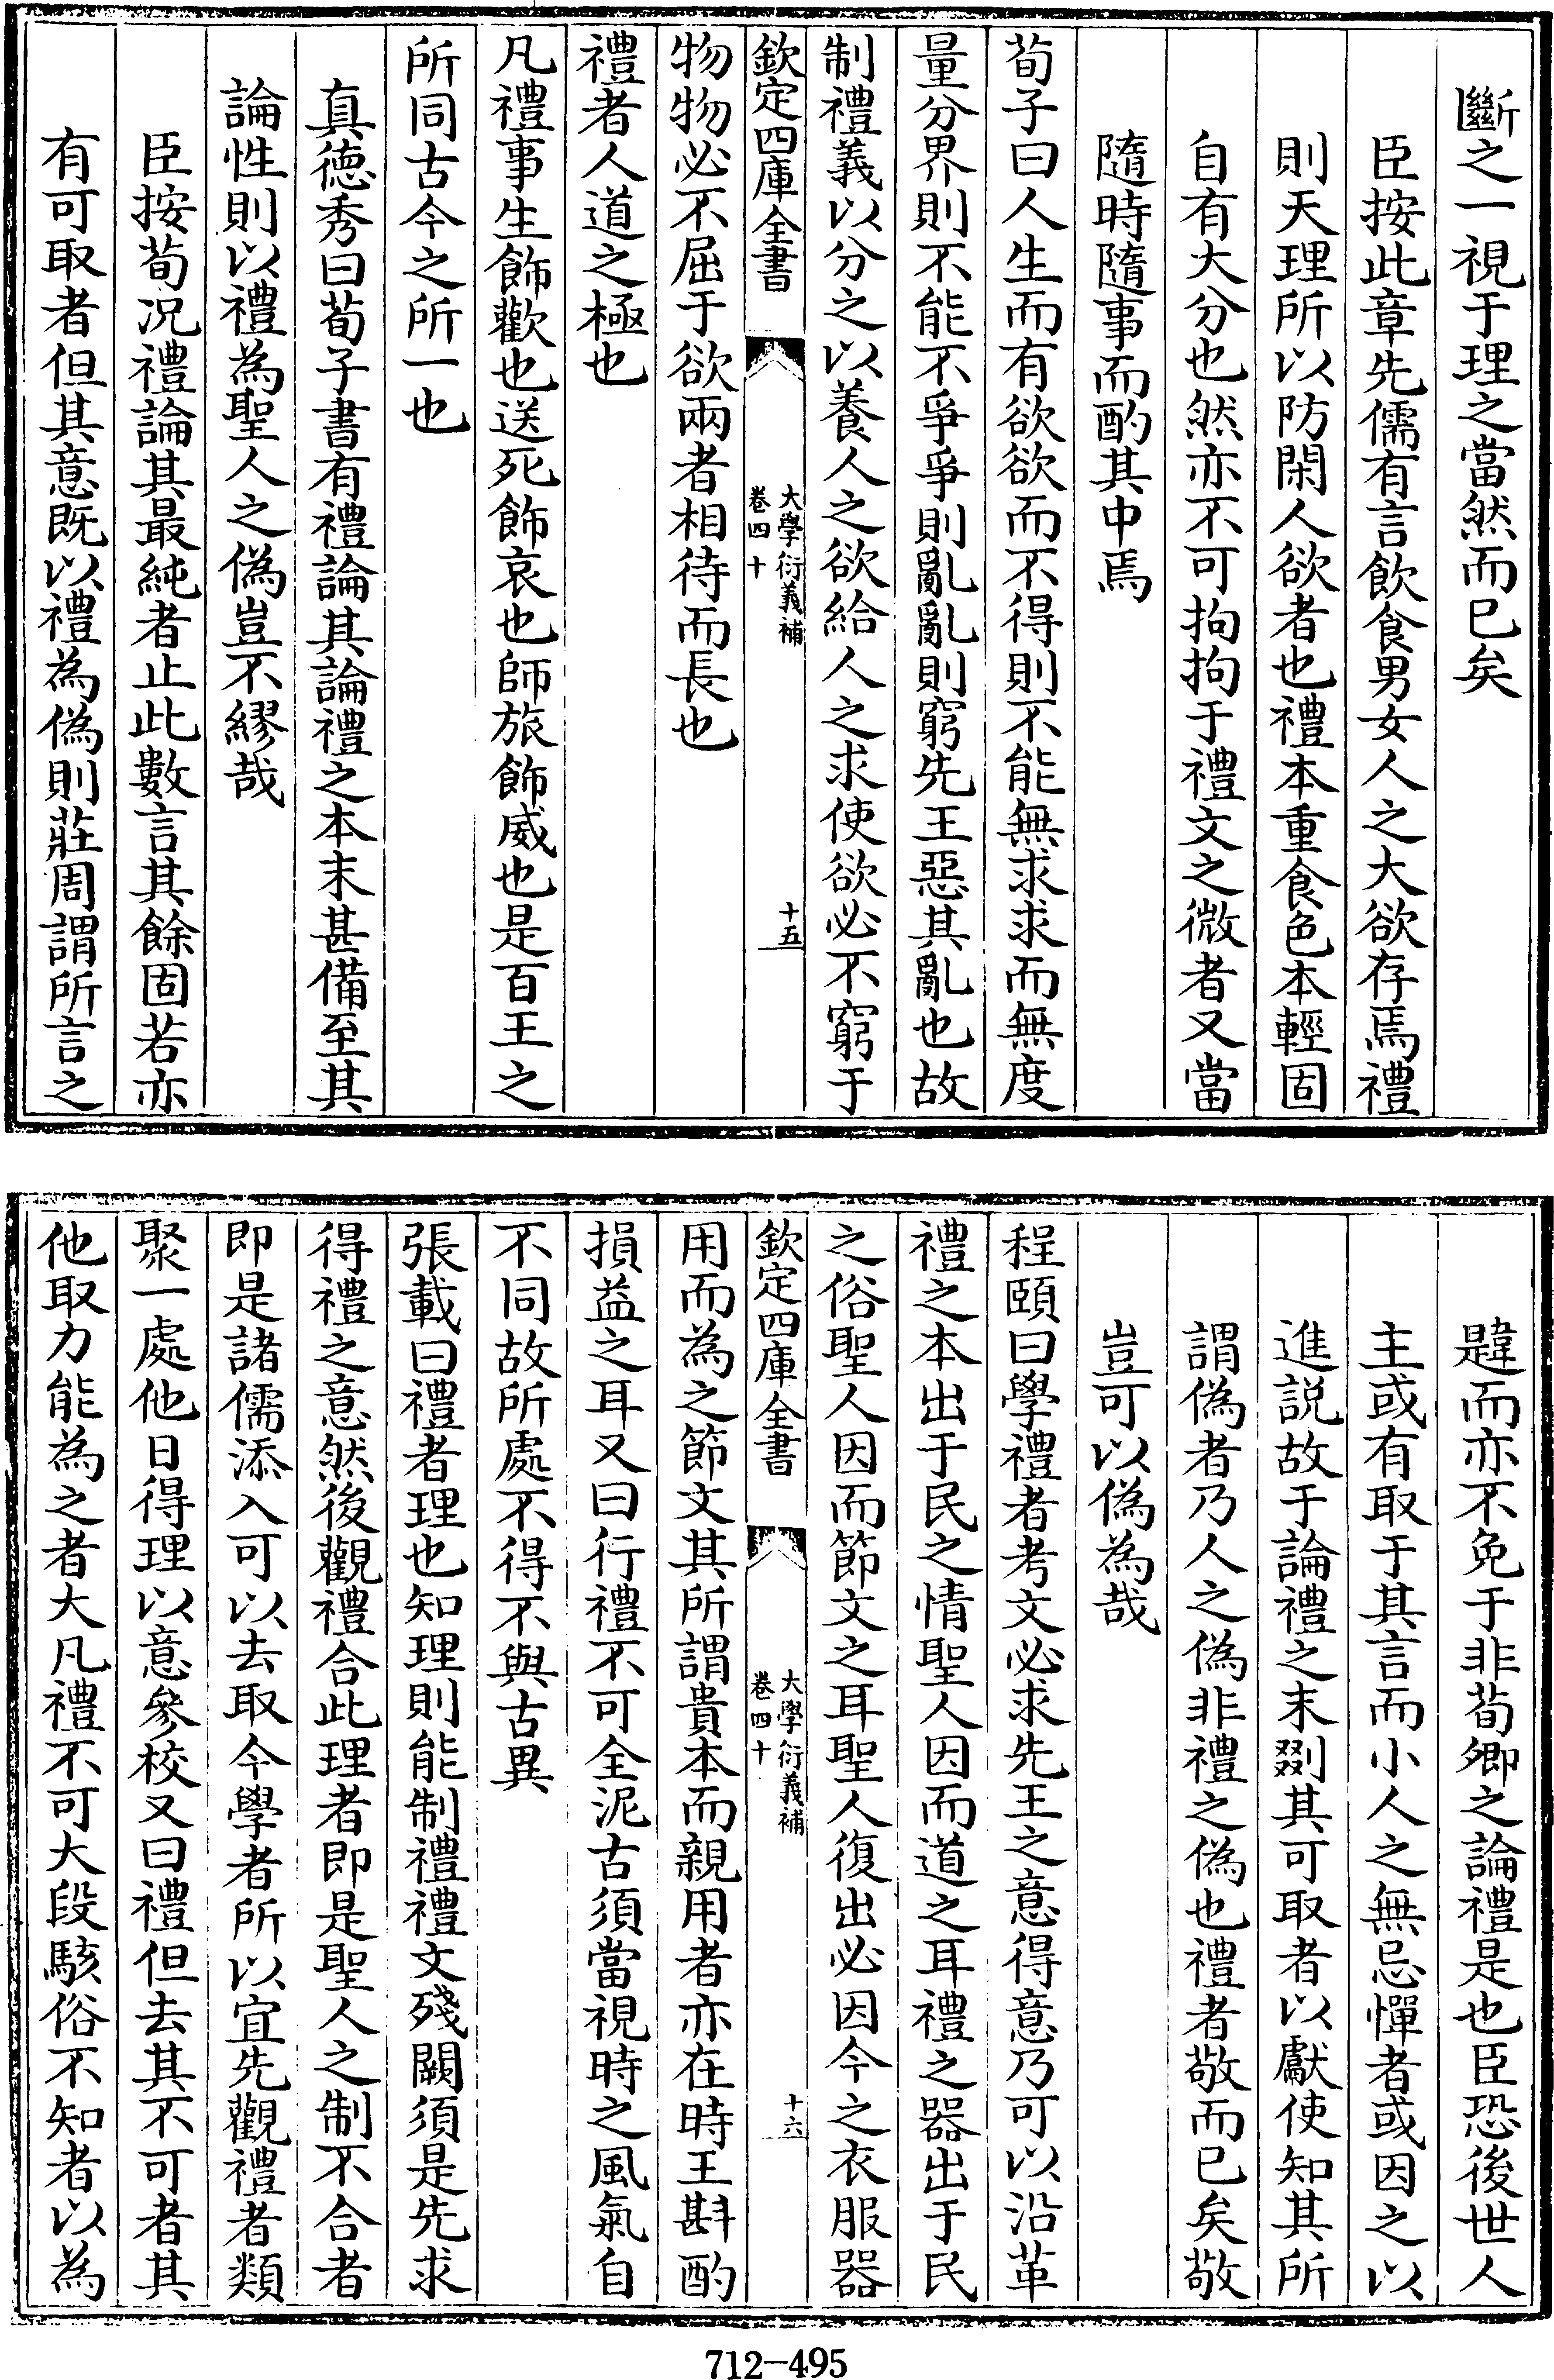 斷之一視于理之當然而已矣
臣按此章先儒有言飲食男女人之大欲存焉禮
則天理所以防閑人欲者也禮本重食色本輕固
自有大分也然亦不可拘拘于禮文之微者又當
隨時隨事而酌其中焉
荀子曰人生而有欲欲而不得則不能無求求而無度
量分界則不能不爭爭則亂亂則窮先王惡其亂也故
制禮義以分之以養人之欲給人之求使欲必不窮于
欽定四庫全書
大學衍義補
卷四十
十五
物物必不屈于欲兩者相待而長也
禮者人道之極也
凡禮事生飾歡也送死飾哀也師旅飾威也是百王之
所同古今之所一也
真德秀曰荀子書有禮論其論禮之本末甚備至其
論性則以禮為聖人之偽豈不繆哉
臣按荀況禮論其最純者止此數言其餘固若亦
有可取者但其意既以禮為偽則莊周謂所言之
韙而亦不免于非荀卿之論禮是也臣恐後世人
主或有取于其言而小人之無忌憚者或因之以
進説故于論禮之末剟其可取者以獻使知其所
謂偽者乃人之偽非禮之偽也禮者敬而已矣敬
豈可以偽為哉
程頤曰學禮者考文必求先王之意得意乃可以沿革
禮之本出于民之情聖人因而道之耳禮之器出于民
之俗聖人因而節文之耳聖人復出必因今之衣服器
欽定四庫全書
大學衍義補
卷四十
十六
用而為之節文其所謂貴本而親用者亦在時王斟酌
損益之耳又曰行禮不可全泥古須當視時之風氣自
不同故所處不得不與古異
張載曰禮者理也知理則能制禮禮文殘闕須是先求
得禮之意然後觀禮合此理者即是聖人之制不合者
即是諸儒添入可以去取今學者所以宜先觀禮者類
聚一處他日得理以意參校又曰禮但去其不可者其
他取力能為之者大凡禮不可大段駭俗不知者以為
712-495